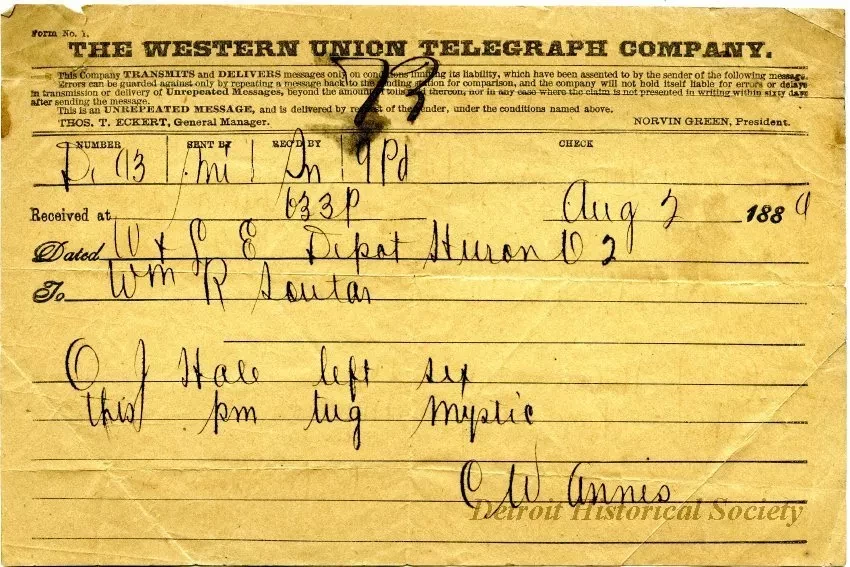 Form No. 1.
THE WESTERN UNION TELEGRAPH COMPANY.
This Company TRANSMITS and DELIVERS messages only on conditions limiting its liability, which have been assented to by the sender of the following message.
Errors can be guarded against only by repeating a message back to the sending station for comparison, and the company will not hold itself liable for errors or delays
in transmission or delivery of Unrepeated Messages, beyond the amount of tolls paid thereon, nor in any case where the claim is not presented in writing within sixty days
after sending the message.
This is an UNREPEATED MESSAGE, and is delivered by request of the sender, under the conditions named above.
THOS. T. ECKERT, General Manager. NORVIN GREEN, President.
NUMBER SENT BY REC'D BY CHECK
D. 93 mi 9 Pd
Received at 633P Aug 2 1889
Dated W & L E Depot Huron O 2
To Wm R Soutar
O J Hale left six
this pm tug Mystic
C W Annis
Detroit Historical Society